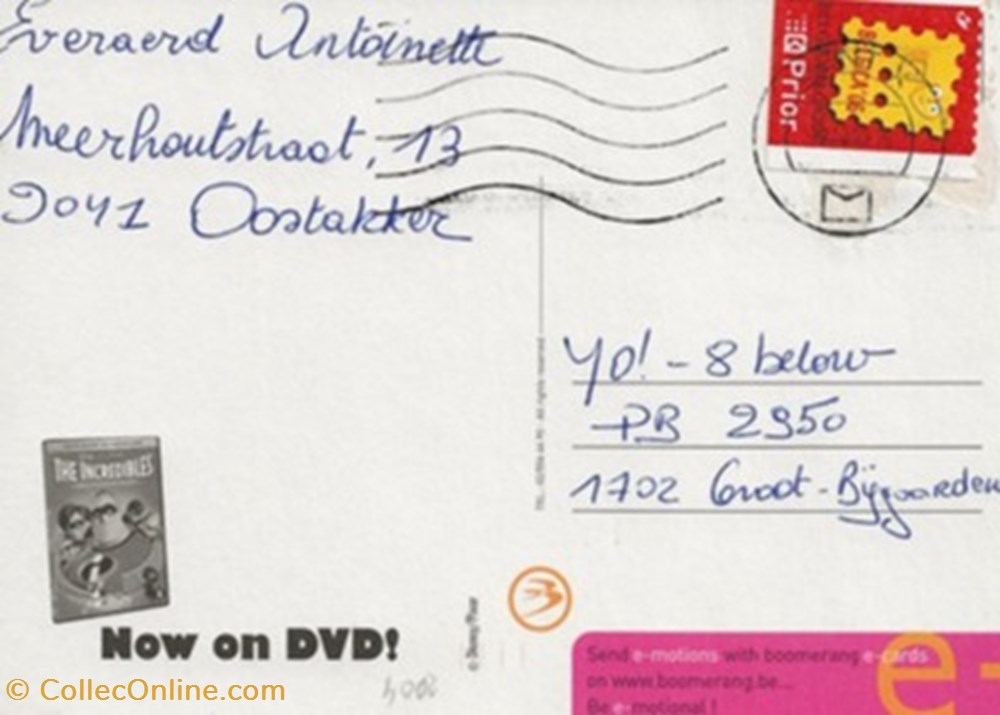 Everaerd Antoinette
Meerhoutstraat, 13
9041 Oostakker
Prior
YO! - 8 below
PB 2950
1702 Groot-Bijgaarden
THE INCREDIBLES
Now on DVD!
Send e-motions with boomerang e-cards
on www.boomerang.be...
Be e-motional !
e-
© CollecOnline.com